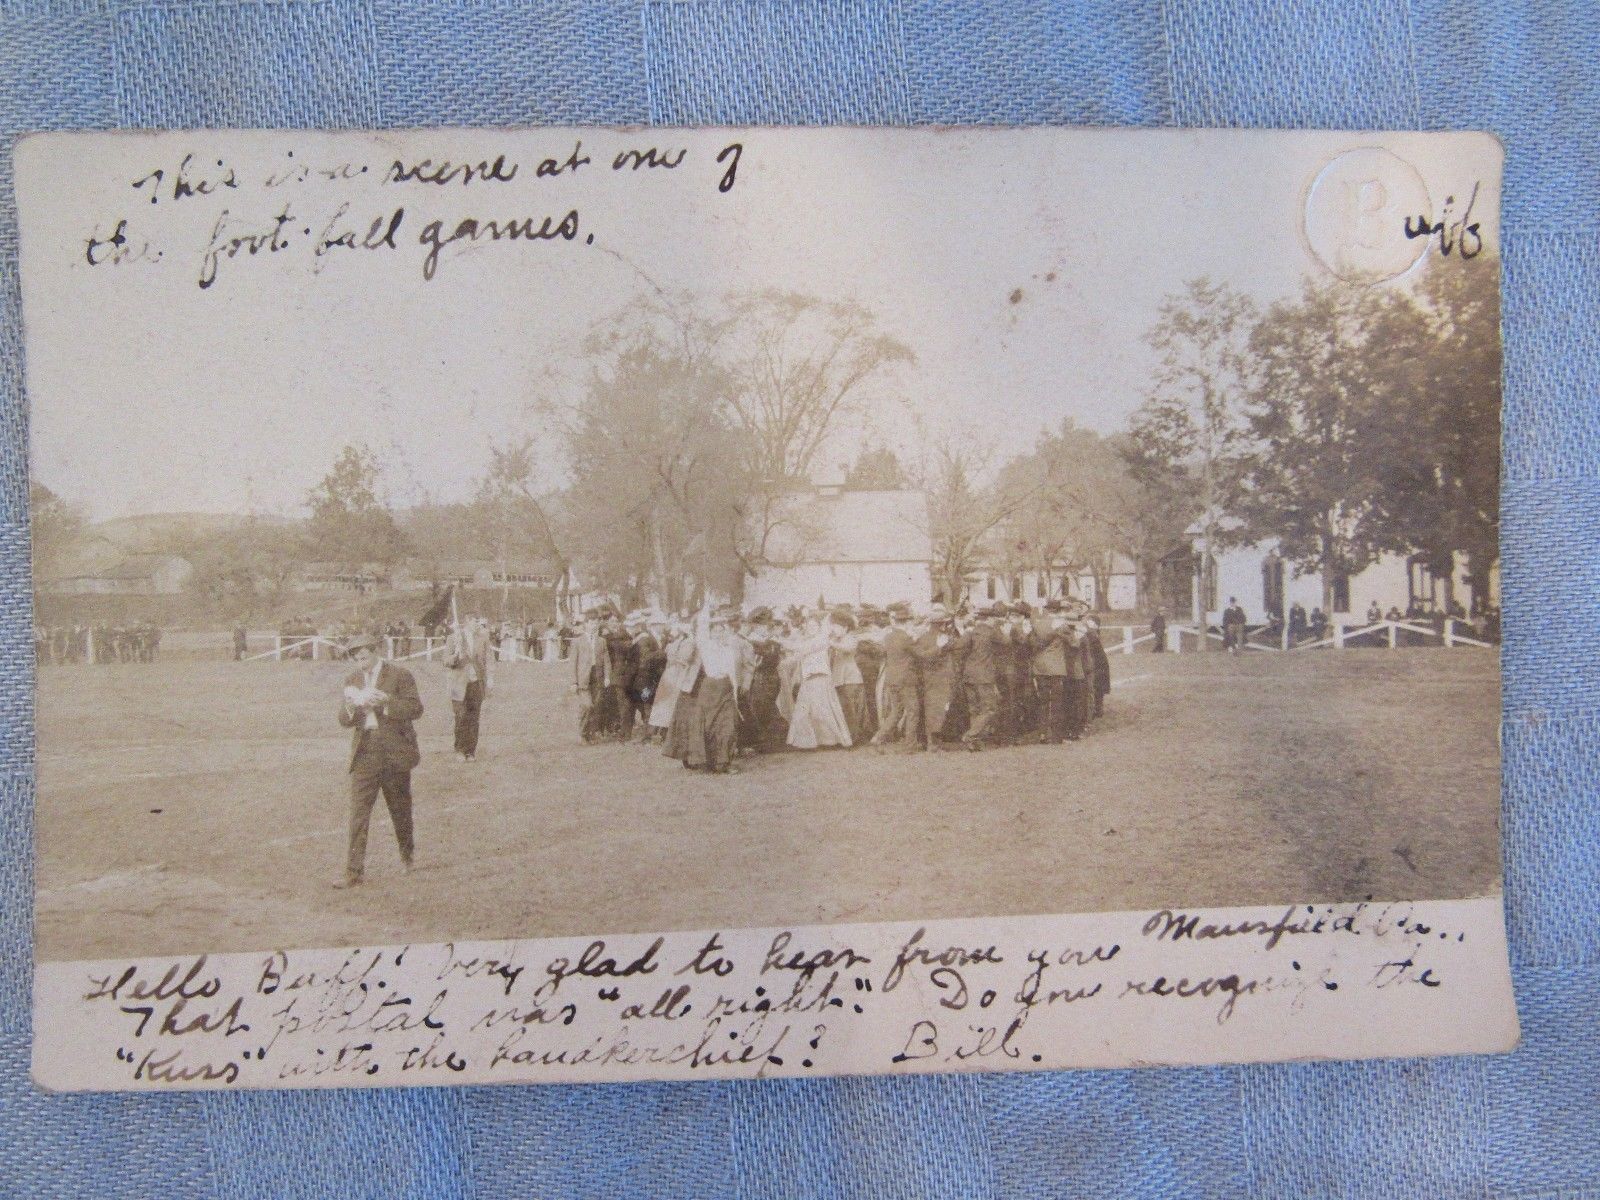 This is a scene at one of
the foot-ball games.
Buff
Mansfield Pa.,
Hello Buff! Very glad to hear from you
That postal was "all right." Do you recognize the
"Kuss" with the handkerchief? Bill.